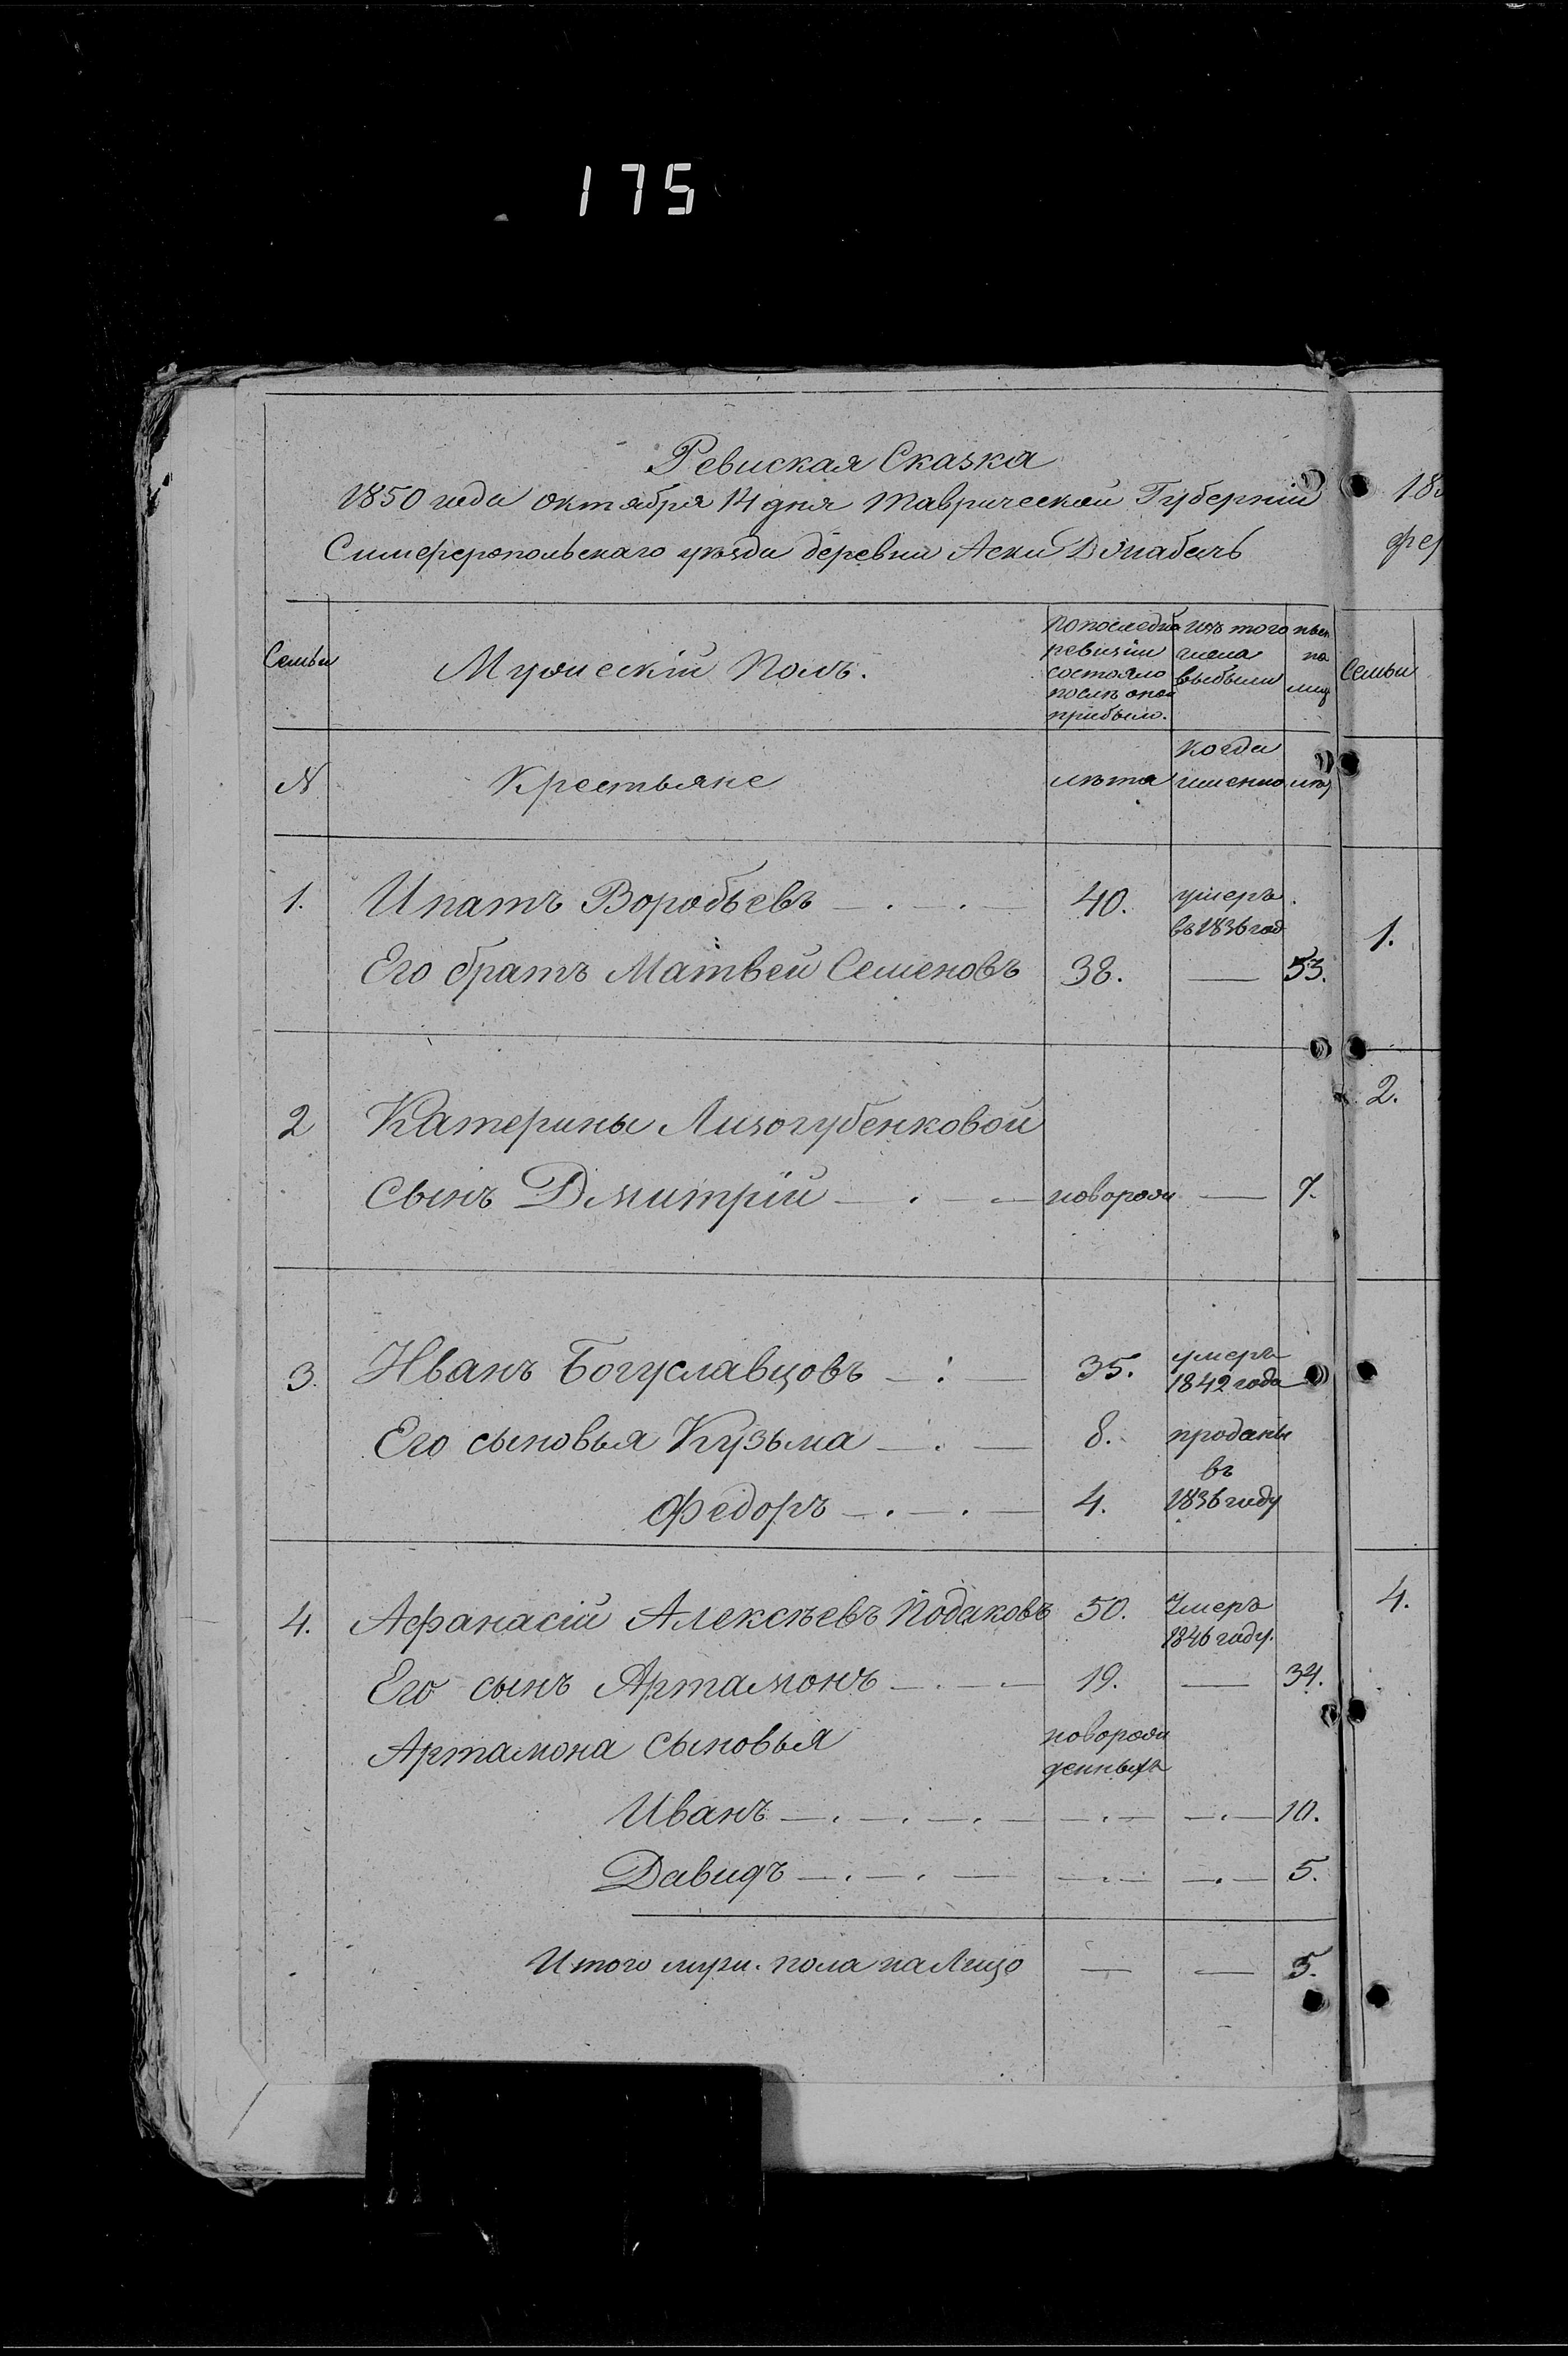 175
Ревиская Сказка
1850 года октября 14 дня Таврической Губернiи
Симферопольскаго уѣзда деревни Аски
Семьи
Мужескiй Полъ.
по последней ревизiи состояло после оной прибыло.
изъ того числа выбыли
ныне на лиц
N
Крестьяне
лѣта
когда именно
лѣт
1. Ипатъ Воробьевъ 40. умеръ въ 1836 год
Его братъ Матвей Семеновъ 38. — 53.
2 Катерины Лизогубенковой
сынъ Дмитрiй новорож — 7.
3. Иванъ Богуславцовъ 35. умеръ 1842 года
Его сыновья Кузьма 8. проданы
въ
Федоръ 4. 1836 году
4. Афанасiй Алексѣевъ Подаковъ 50. Умеръ 1846 году.
Его сынъ Артамонъ 19. — 34.
Артамона сыновья новорож денныхъ
Иванъ 10.
Давидъ 5.
Итого муж. пола на Лицо — — 5.
185
фер
Семьи
1.
2.
4.